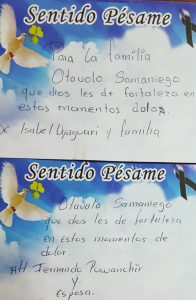 Sentido Pésame
Para la familia
Otavalo Samaniego
que dios les de fortaleza en
estos momentos dolor.
DE Isabel Uyaguari y familia
Sentido Pésame
Otavalo Samaniego
que dios les de fortaleza
en estos momentos de
dolor.
Att. Fernando Puwanchir
y
esposa.